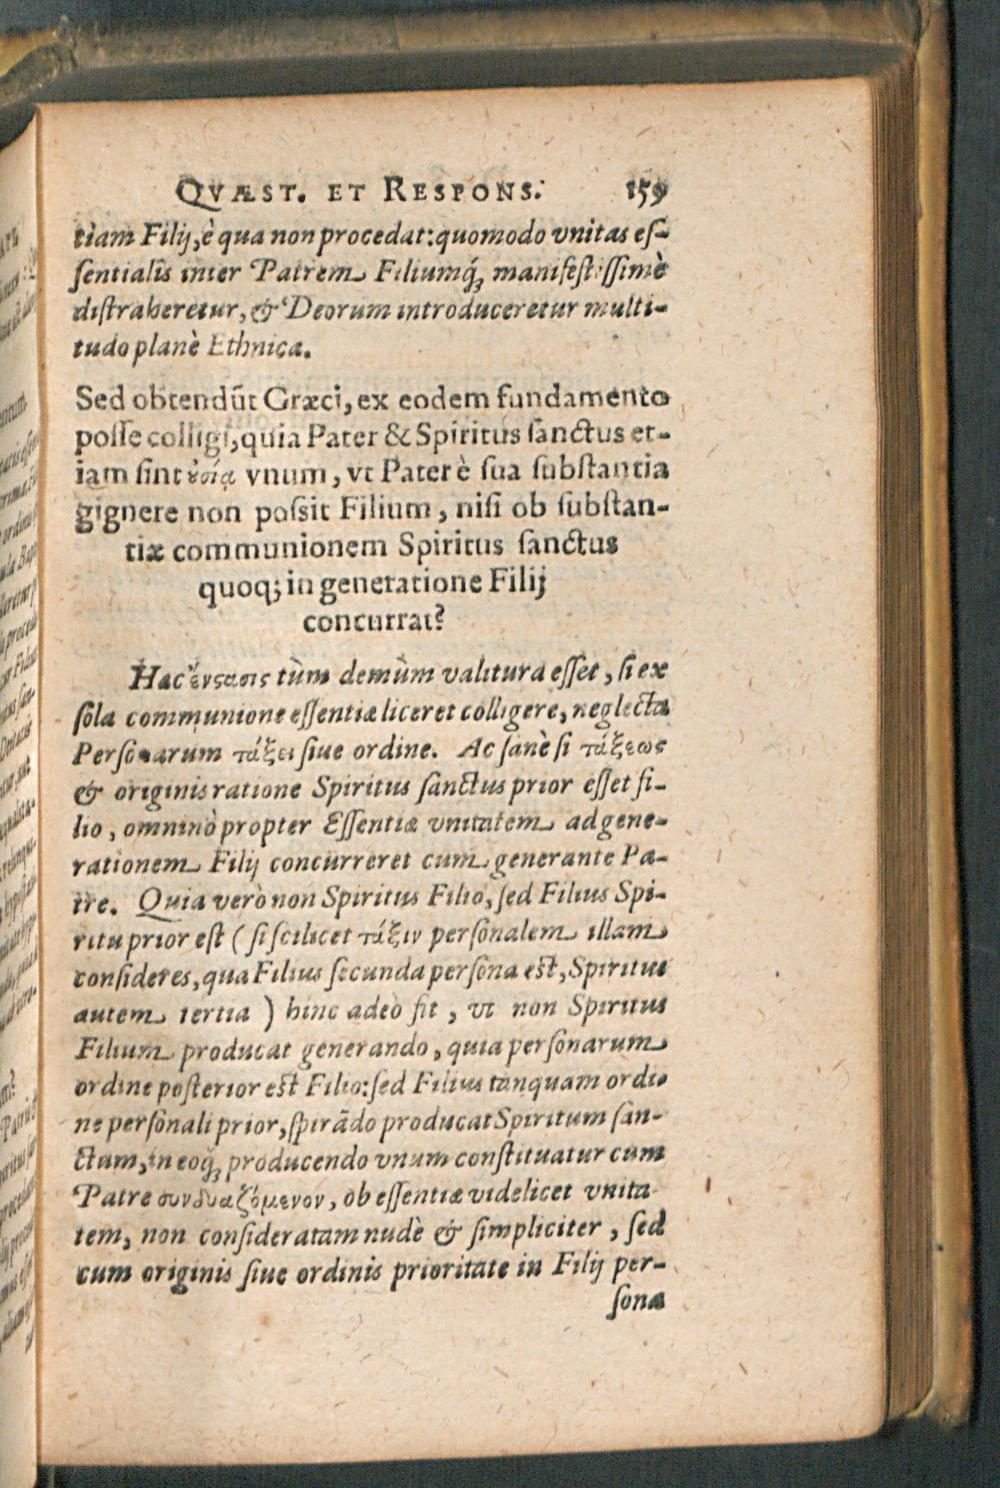 QVÆST. ET RESPONS. 159
tiam Filij, è qua non procedat: quomodo vnitas eſ-
ſentialis inter Patrem Filiumq́; manifeſtiſſimè
diſtraheretur, & Deorum introduceretur multi-
tudo planè Ethnica.
Sed obtendũt Græci, ex eodem fundamento
poſſe colligi, quia Pater & Spiritus ſanctus et-
iam ſint ὐσίᾳ vnum, vt Pater è ſua ſubſtantia
gignere non poſsit Filium, niſi ob ſubſtan-
tiæ communionem Spiritus ſanctus
quoq; in generatione Filij
concurrat?
Hac ἔνςασις tùm demùm valitura eſſet, ſi ex
ſola communione eſſentiæ liceret colligere, neglecta
Perſonarum τάξει ſiue ordine. Ac ſanè ſi τάξεως
& originis ratione Spiritus ſanctus prior eſſet fi-
lio, omninò propter Eſſentiæ vnitatem ad gene-
rationem Filij concurreret cum generante Pa-
tre. Quia verò non Spiritus Filio, ſed Filius Spi-
ritu prior eſt (ſi ſcilicet τάξιν perſonalem illam
conſideres, qua Filius ſecunda perſona eſt, Spiritus
autem tertia) hinc adeò fit, vt non Spiritus
Filium producat generando, quia perſonarum
ordine poſterior eſt Filio: ſed Filius tanquam ordi-
ne perſonali prior, ſpirãdo producat Spiritum ſan-
ctum, in eoq́; producendo vnum conſtituatur cum
Patre συνδυαζόμενον, ob eſſentiæ videlicet vnita-
tem, non conſideratam nudè & ſimpliciter, ſed
cum originis ſiue ordinis prioritate in Filij per-
ſona